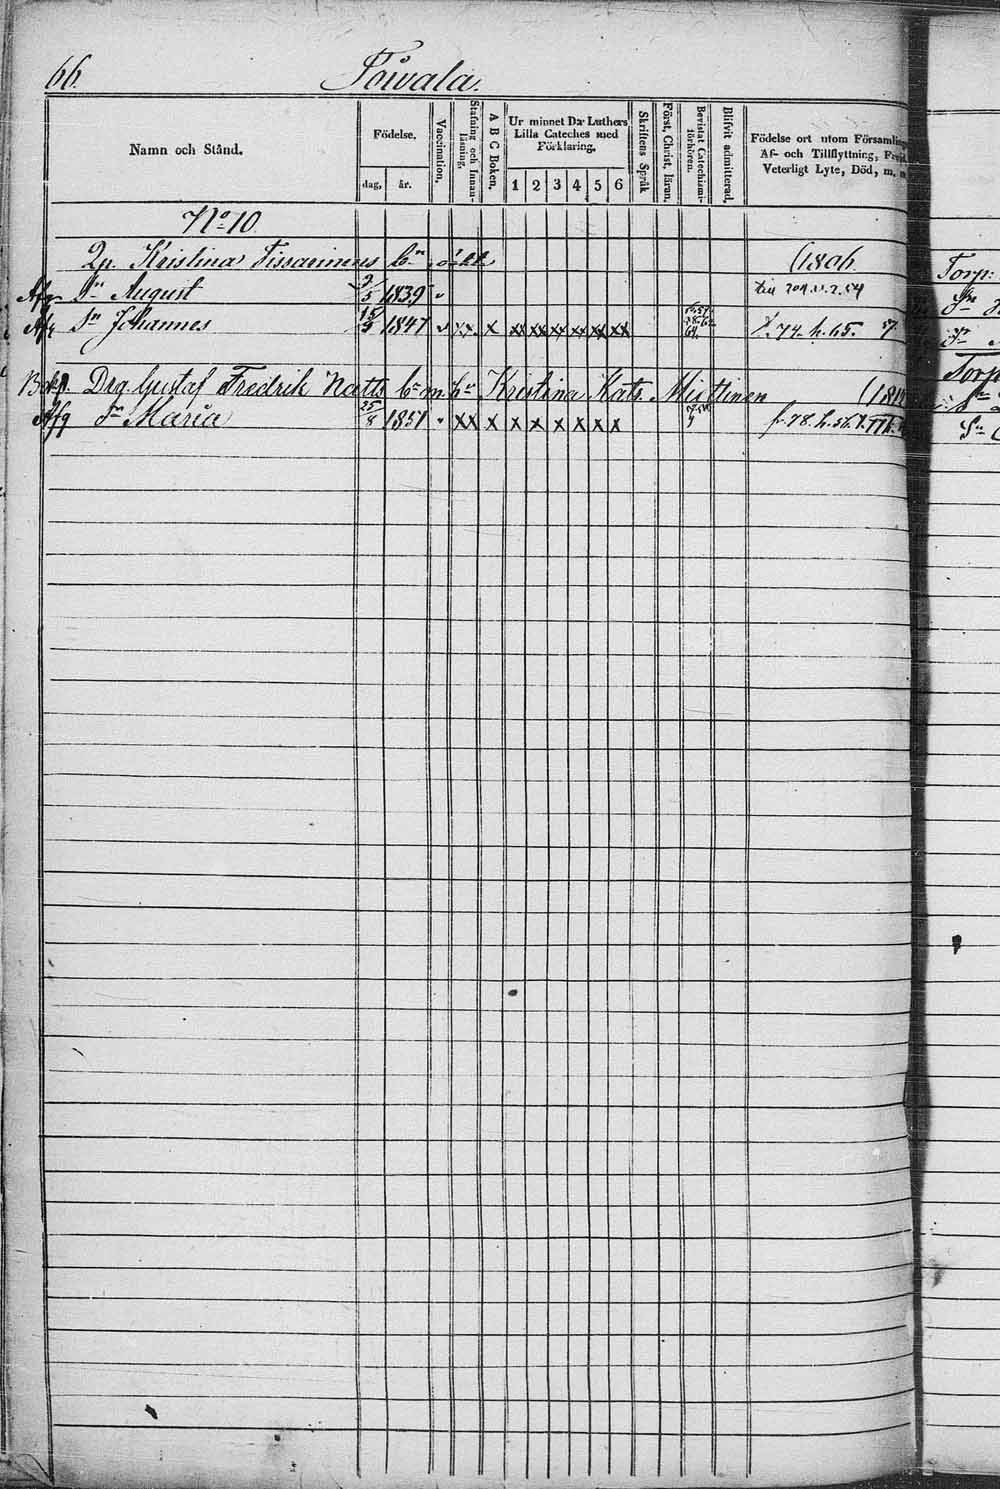 66. Towala.
Namn och Stånd.
Födelse.
dag, år.
Vaccination,
Stafning och Innanläsning,
A B C Boken,
Ur minnet Dr Luthers Lilla Cateches med Förklaring,
1 2 3 4 5 6
Skriftens Språk
Först, Christ, läran,
Bevistat Catechismiförhören.
Blifvit admitterad,
Födelse ort utom Församling
Af- och Tillflyttning,
Veterligt Lyte, Död, m. m
No 10
Qp. Kristina Tissarinens bn oäkta (1806
Afg Sn August 2/5 1839
Afg Sn Johannes 15/4 1847 v xx x xx xx xx xx xx xx f. 74. h. 65.
Drg Gustaf Fredrik Natts bn m. hu Kristina Kats. Miettinen (181
Afg dr Maria 25/8 1851 xx x x x x x x x f. 78. h. 56.
Torp:
Torp